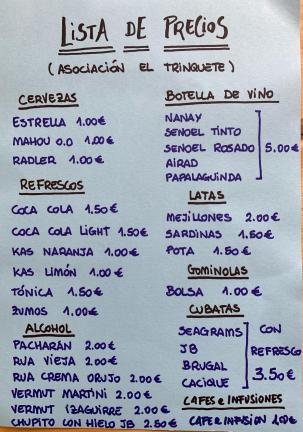 LISTA DE PRECIOS
(ASOCIACIÓN EL TRINQUETE)
CERVEZAS
ESTRELLA 1.00€
MAHOU 0.0 1.00€
RADLER 1.00€
REFRESCOS
COCA COLA 1.50€
COCA COLA LIGHT 1.50€
KAS NARANJA 1.00€
KAS LIMÓN 1.00€
TÓNICA 1.50€
ZUMOS 1.00€
ALCOHOL
PACHARÁN 2.00€
RUA VIEJA 2.00€
RUA CREMA ORUJO 2.00€
VERMUT MARTINI 2.00€
VERMUT IZAGUIRRE 2.00€
CHUPITO CON HIELO JB 2.50€
BOTELLA DE VINO
NANAY
SENOEL TINTO
SENOEL ROSADO 5.00€
AIRAD
PAPALAGUINDA
LATAS
MEJILLONES 2.00€
SARDINAS 1.50€
POTA 1.50€
GOMINOLAS
BOLSA 1.00€
CUBATAS
SEAGRAMS CON
JB REFRESCO
BRUGAL 3.50€
CACIQUE
CAFES e INFUSIONES
CAFE e INFUSION 1.00€